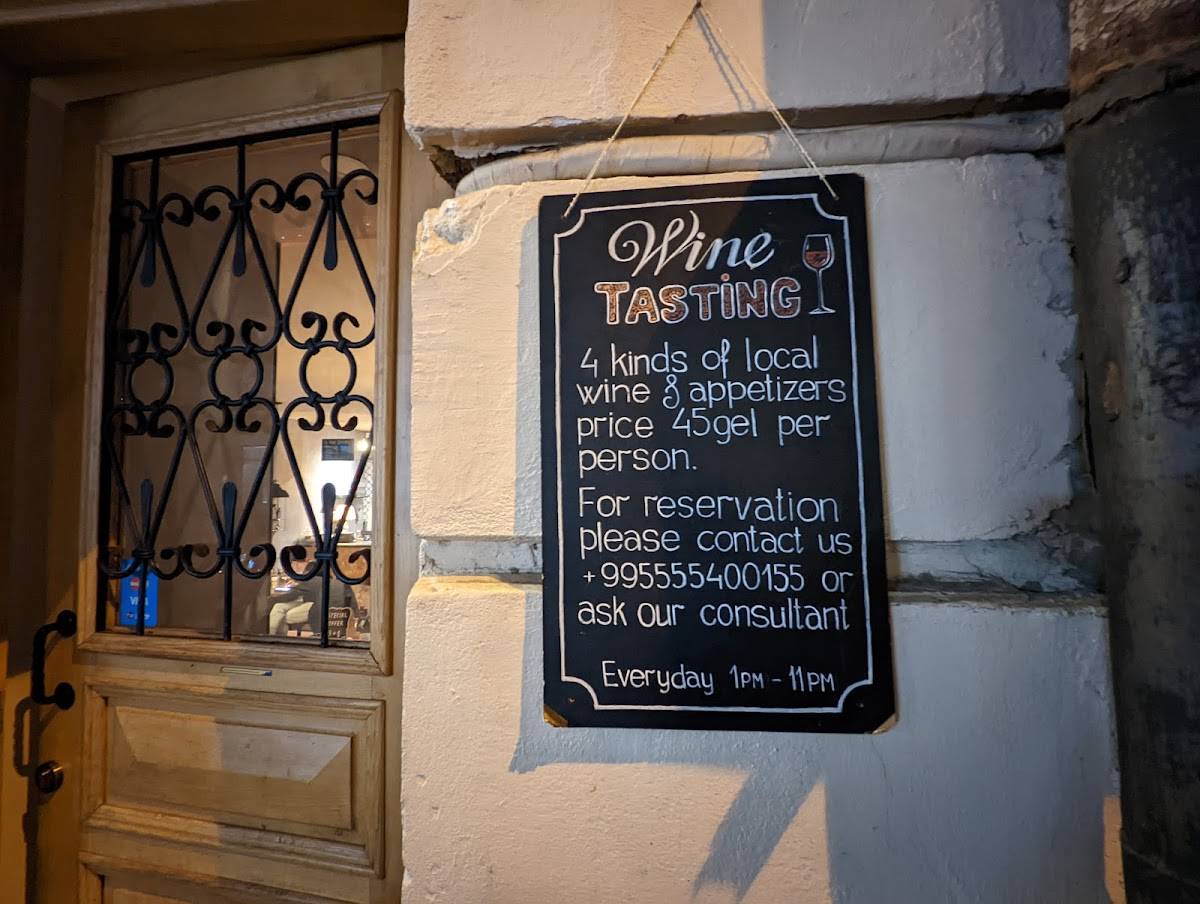 Wine
TASTING
4 kinds of local
wine & appetizers
price 45gel per
person.
For reservation
please contact us
+995555400155 or
ask our consultant
Everyday 1PM - 11PM